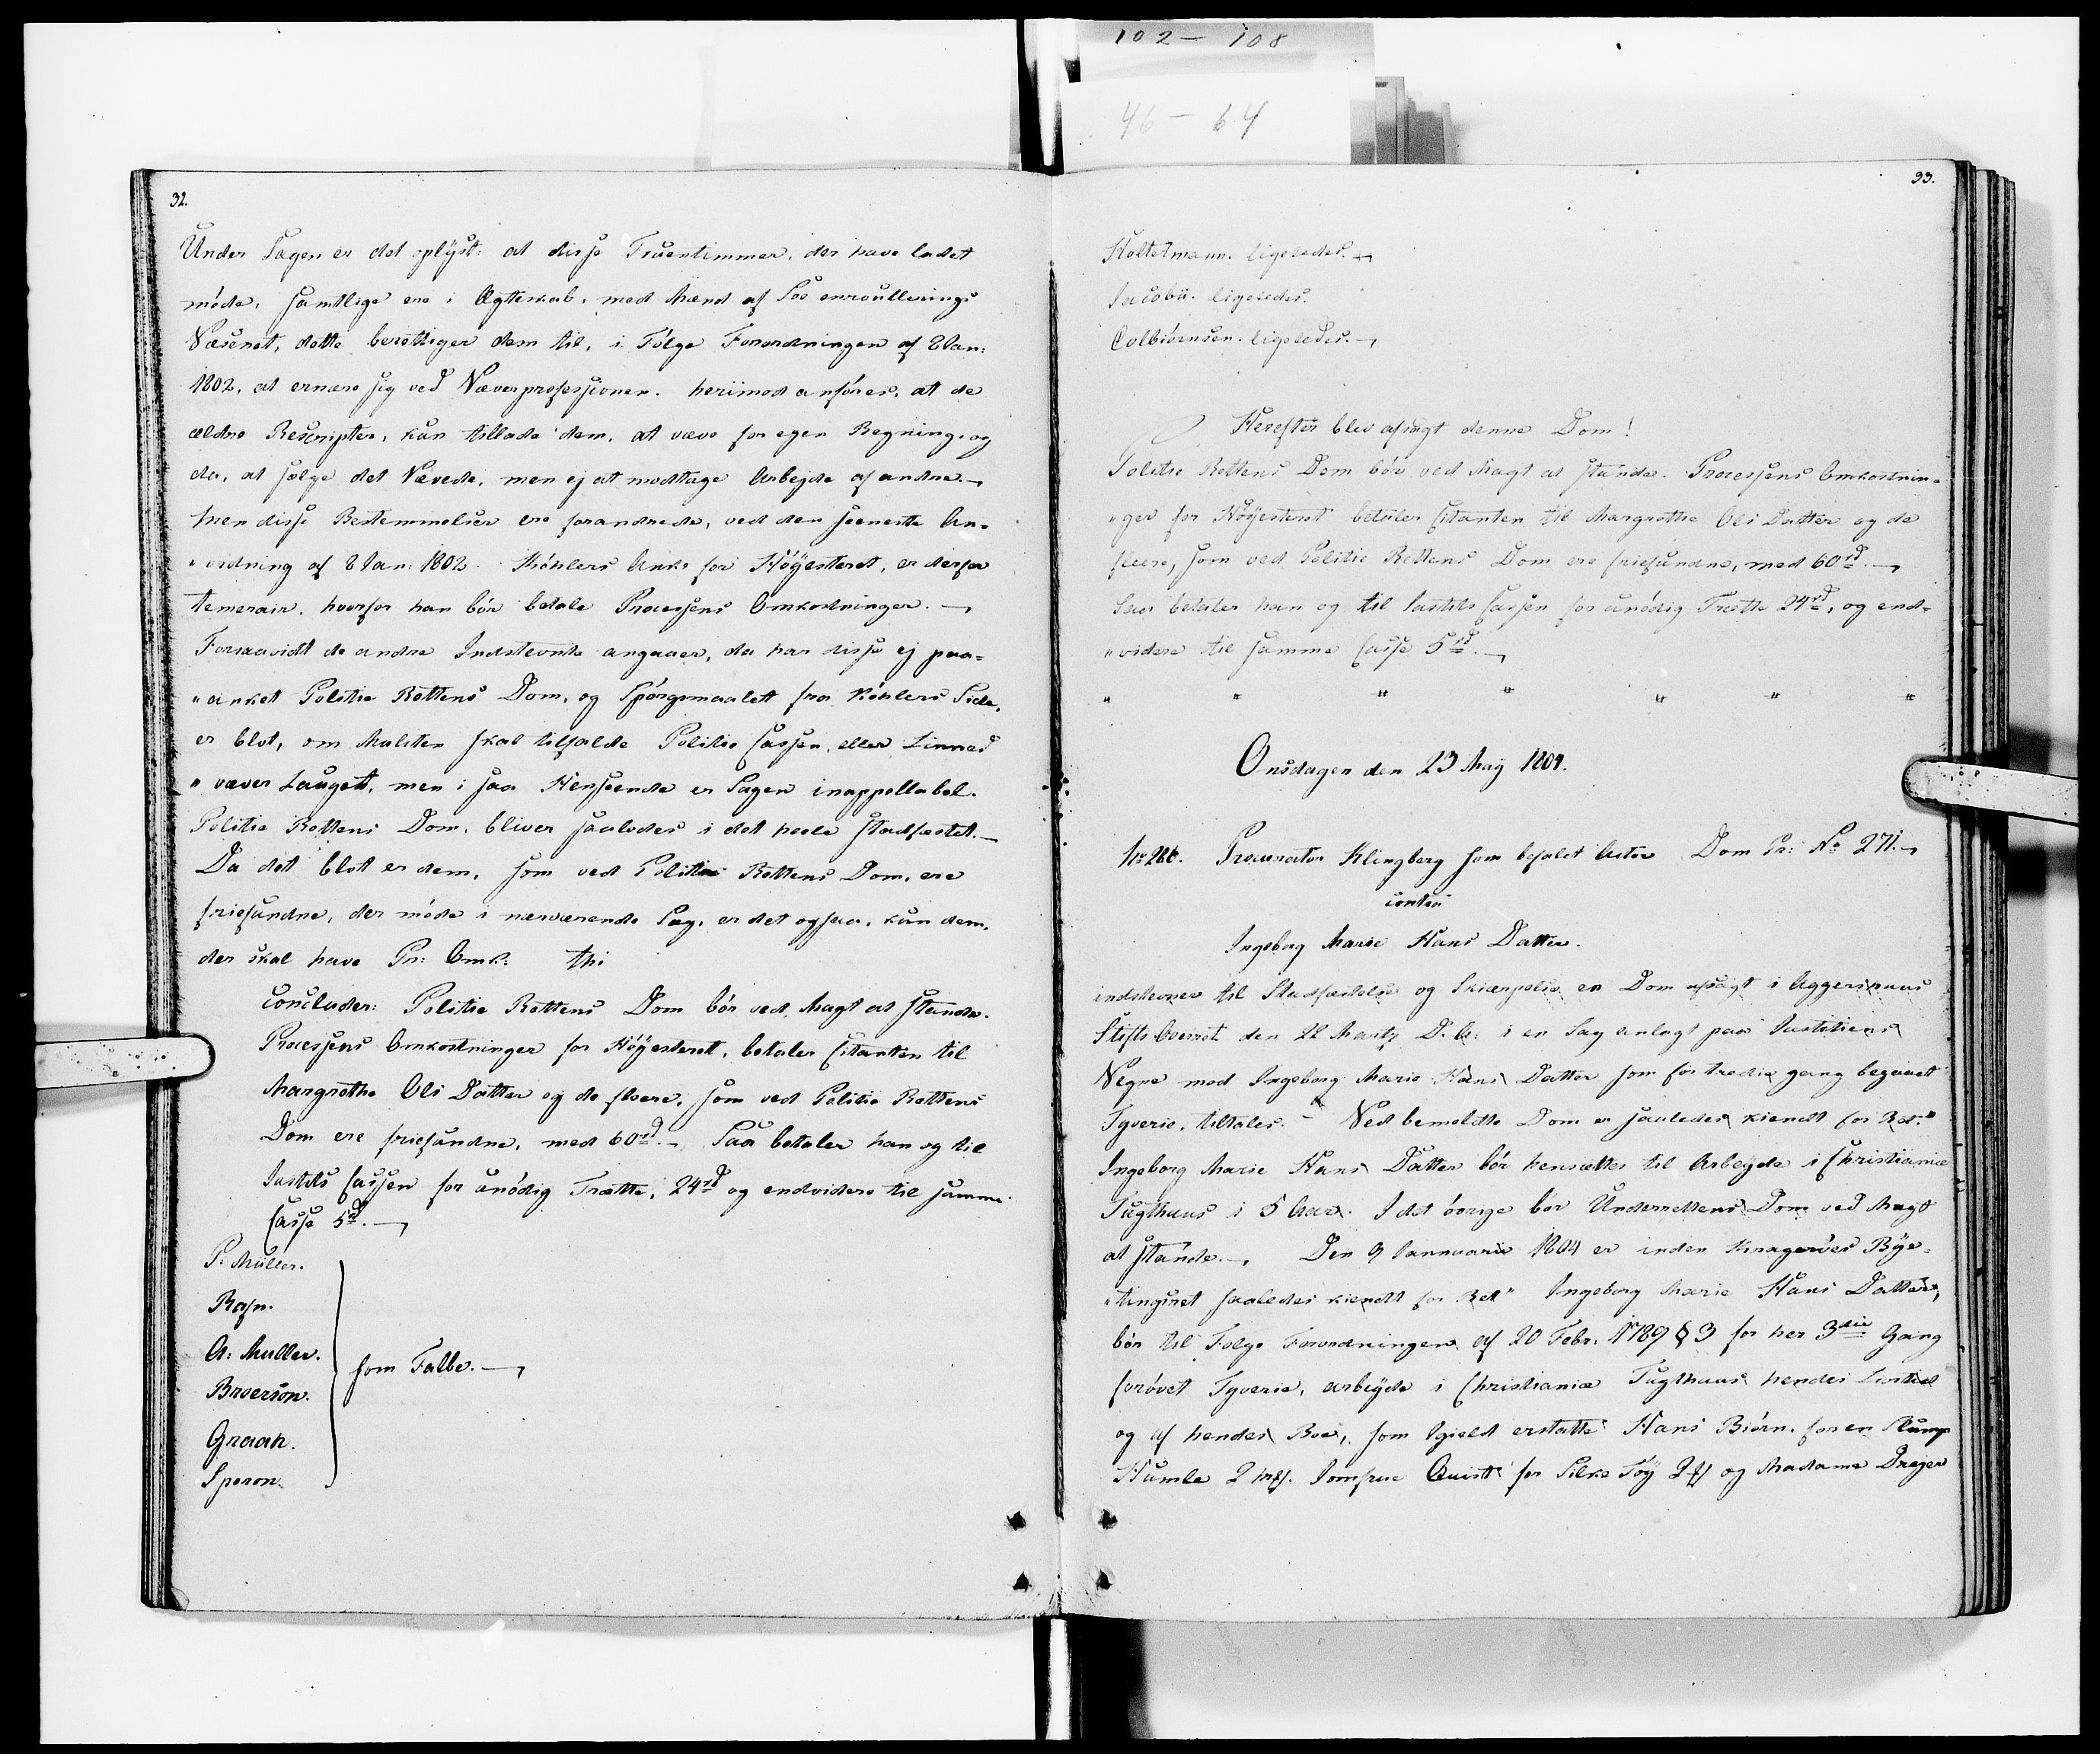 102 – 108
46 – 64
32.
Under Sagen er det oplÿst: at disse Fruentimmer, der have ladet
møde, samtlige ere i Ægteskab, med Mænd af Søe enroullerings
Væsenet, dette berettiger dem til, i Følge Forordningen af 8 Jan:
1802, at ernære sig ved Væverprofessionen. heriimod anføres, at de
ældre Rescripter, kun tillade dem, at væve for egen Regning, og
da, at sælge det Vævede, men ej at modtage Arbejde af andre. –
Men disse Bestemmelser ere forandrede, ved den seeneste An-
„ordning af 8 Jan: 1802. Köhlers Anke for Høÿesteret, er derfor
temerair, hvorfor han bør betale Processens Omkostninger. –
Forsaavidt de andre Indstevnte angaaer, da har disse ej paa-
„anket Politie Rettens Dom, og Spørgsmaalett fra Köhlers Side,
er blot, om Mulcten skal tilfalde Politie Cassen, eller Linned
„væver Lauget, men i saa Henseende er Sagen inappellabel.
Politie Rettens Dom, bliver saaledes i det heele stadfæstet. –
Da det blot er dem, som ved Politie Rettens Dom, ere
friefundne, der møde i nærværende Sag, er det ogsaa, kun dem,
der skal have Pr: Omk: thi
concluder: Politie Rettens Dom bør ved Magt at stande.
Processens Omkostninger for Høÿesteret, betaler Citanten til
Margrethe Ols Datter og de fleere, som ved Politie Rettens
Dom ere friefundne, med 60rd. – Saa betaler han og til
Justits Cassen for unödig Trætte, 24rd og endvidere til samme
Casse 5rd. –
P: Müller.
Rafn.
A: Muller.
Broerson.
Graah.
Sporon.
som Falbe. –
33.
Koltermann. ligeledes. –
Jacobii. ligeledes.
Colbiørnsen. ligeledes. –
Herefter blev afsagt denne Dom!
Politie Rettens Dom bör ved Magt at stande. Processens Omkostnin-
„ger for Höÿesteret betaler Citanten til Margrethe Ols Datter og de
fleere, som ved Politie Rettens Dom ere friefundne, med 60rd. –
Saa betaler han og til Justits Cassen for unödig Trætte 24rd, og end-
„videre til samme Casse 5rd. –
" " " " " " "
Onsdagen den 23 Maÿ 1804.
No 286. Procurator Klingberg som befalet Actor Dom Pr: No 271. –
contra
Ingeborg Marie Hans Datter.
indstevner til Stadfæstelse og Skiærpelse en Dom afsagt i Aggershuus
Stifts Overret den 22 Marts D. A: i en Sag anlagt paa Justitiens
Vegne mod Ingeborg Marie Hans Datter som for tredie gang begaaet
Tyverie, tiltales. – Ved bemeldte Dom er saaledes kiendt for Ret:"
Ingeborg Marie Hans Datter bör hensættes til Arbeÿde i Christianiæ
Tugthuus i 5 Aar. I det övrige bør Underrettens Dom ved Magt
at stande. – Den 9 Jannuarii 1804 er inden Kragerøes Bÿe-
„tingsret saaledes kiendt for Ret" Ingeborg Marie Hans Datter,
bör til Følge Forordningen af 20 Febr. 1789 § 3 for her 3die Gang
forøvet Tyverie, arbeÿde i Christianiæ Tugthuus hendes Livstiid
og af hendes Boe, som Igield erstatte Hans Biörn, for en Klump
Humle 2 mk. Jomfrue Quist for Silke Töÿ 2 ß og Madame Drejer